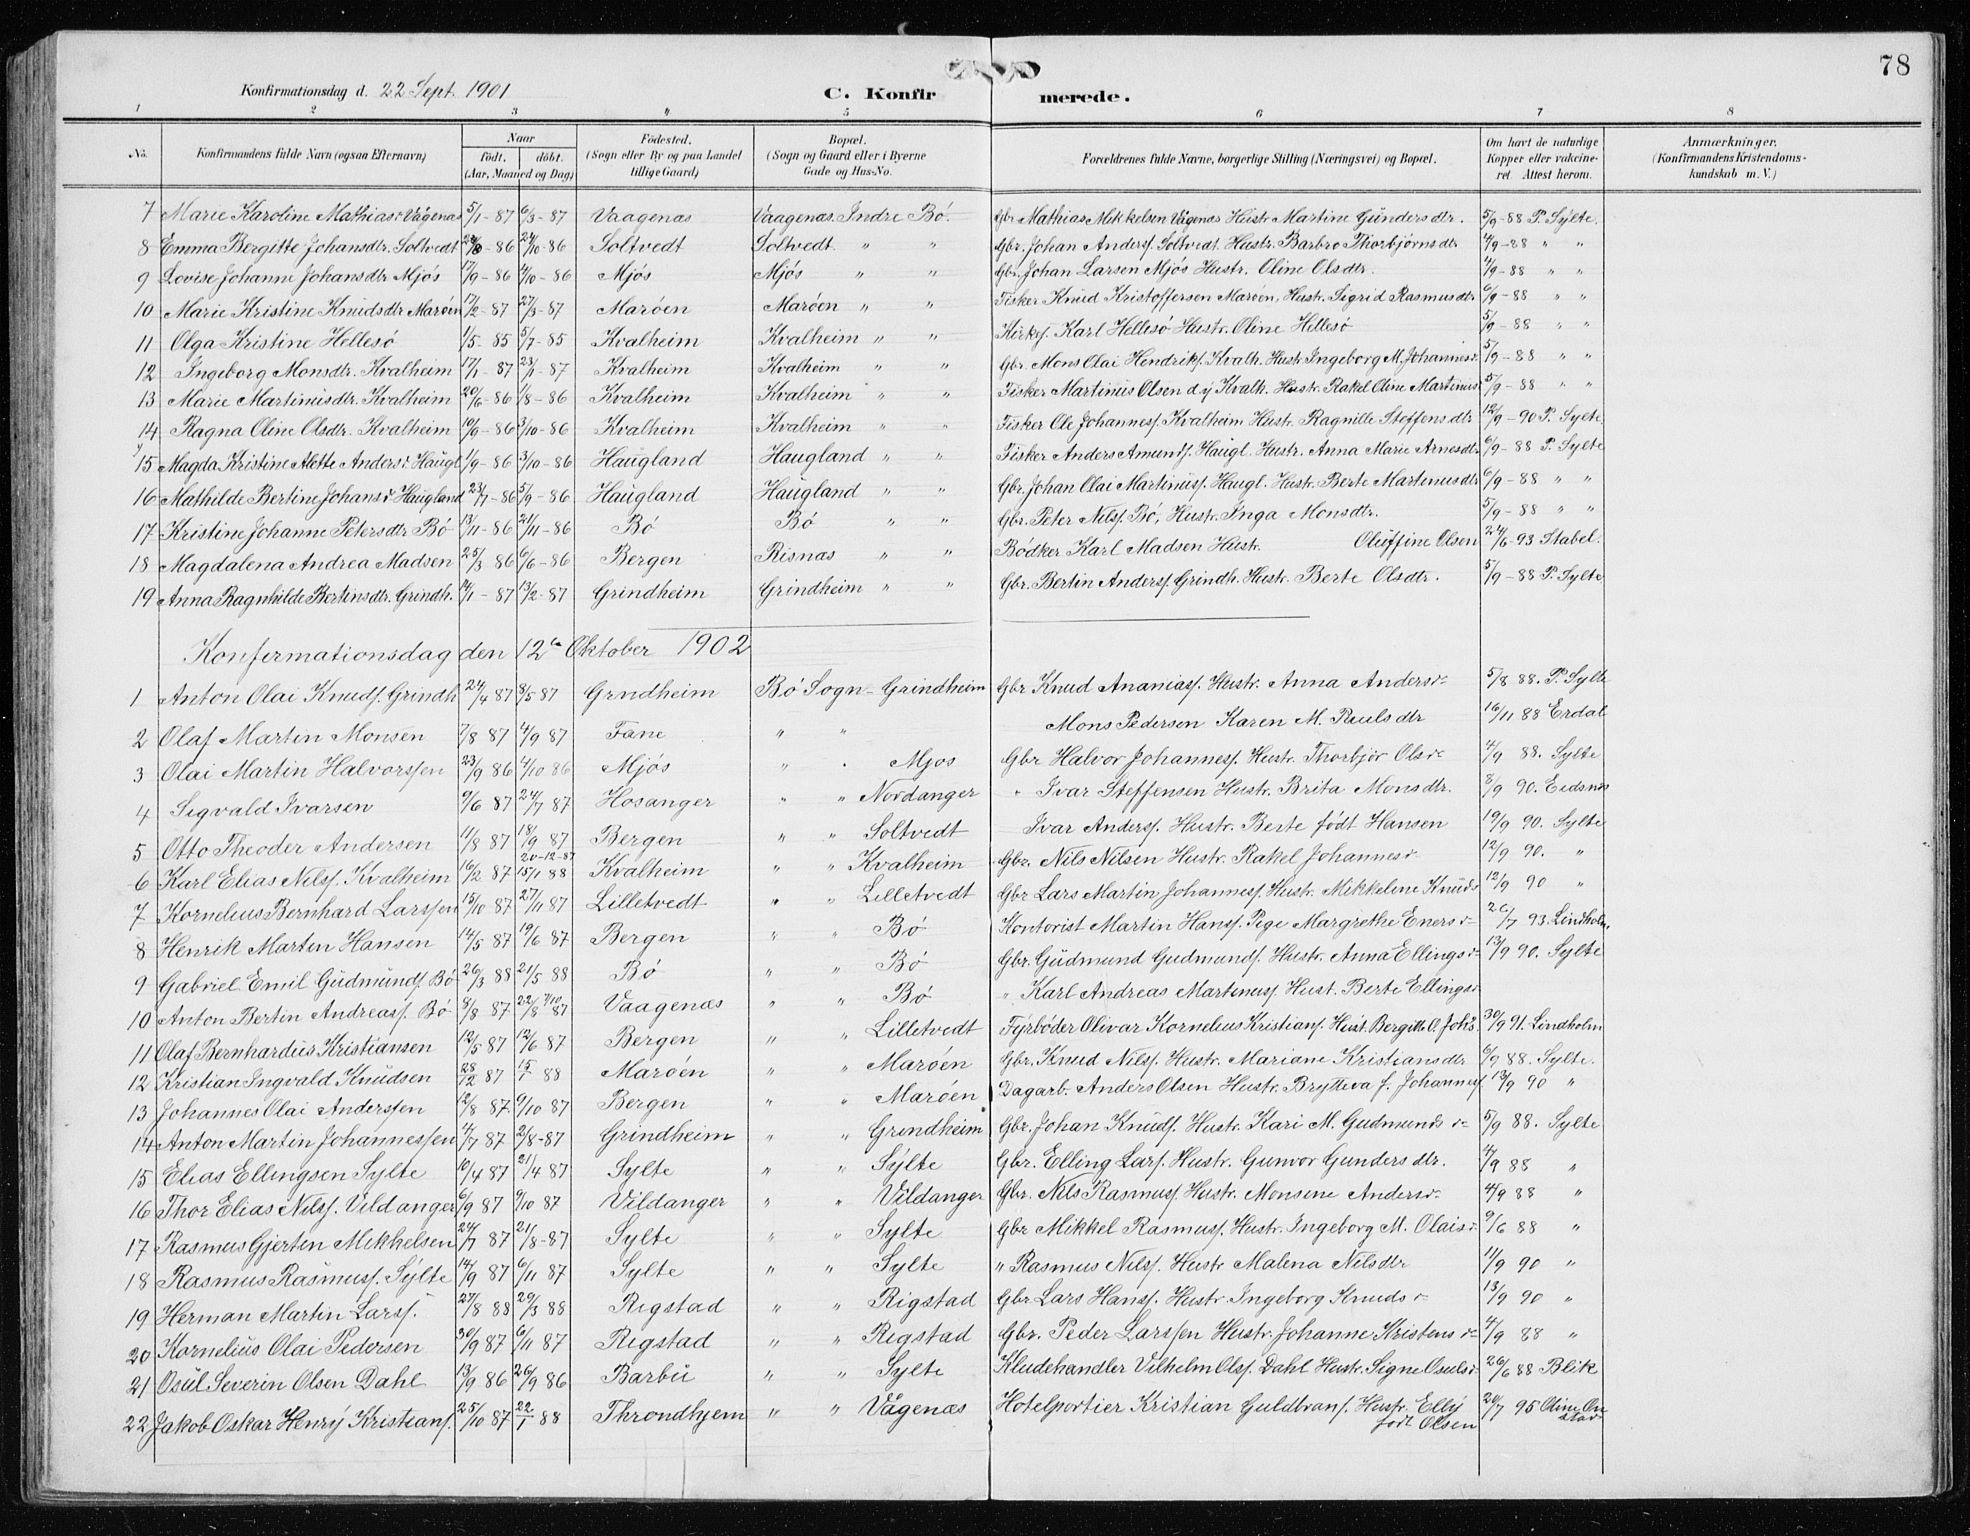 78
Konfirmationsdag d. 22 Sept. 1901 C. Konfirmerede.
1 2 3 4 5 6 7 8
No. Konfirmandens fulde Navn (ogsaa Efternavn) Naar født. døbt. (Aar, Maaned og Dag) Fødested. (Sogn eller By og paa Landet tillige Gaard) Bopæl. (Sogn og Gaard eller i Byerne Gade og Hus-No. Forældrenes fulde Navne, borgerlige Stilling (Næringsvei) og Bopæl. Om havt de naturlige Kopper eller vakcineret. Attest herom. Anmærkninger, (Konfirmandens Kristendomskundskab m. V.)
7 Marie Karoline Mathiasdr Vågenas 5/1-87 6/3-87 Vaagenas Vaagenas. Indre Bö. Gbr Mathias Mikkelsen Vågenas Hustr Martine Gündersdtr. 5/9-88 P. Sylte.
8 Emma Bergitte Johansdtr. Soltvedt 86 24/10-86 Soltvedt Soltvedt. " " Gbr. Johan Anders. Soltvedt. Hustr. Barbro Thorbjörnsdtr 4/9-88 " "
9 Lovise Johanne Johansdtr Mjös 17/9-86 4/10-86 Mjös Mjös " " Gbr. Johan Larsen Mjös Hustr. Oline Olsdtr. 4/9-88 " "
10 Marie Kristine Knudsdtr Maröen 17/2-87 27/3-87 Maröen Maröen " " Fisker Knud Kristoffersen Maröen, Hust. Sigrid Rasmusdtr 6/9-88 " "
11 Olga Kristine Hellesö 1/5-85 5/7-85 Kvalheim Kvalheim " " Kirkes. Karl Hellesö Hustr. Oline Hellesö 5/9-88 " "
12 Ingeborg Monsdtr. Kvalheim 17/1-87 23/1-87 Kvalheim Kvalheim " " Gbr. Mons Olai Hendriks. Kvalh. Hustr. Ingeborg M. Johannesdr. 5/9-88 " "
13 Marie Martinusdtr. Kvalheim 20/6-86 1/8-86 Kvalheim Kvalheim " " Fisker Martinus Olsen d y Kvalh. Hustr. Rakel Oline Martinus 5/9-88 " "
14 Ragna Oline Olsdtr. Kvalheim 10/9-86 3/10-86 Kvalheim Kvalheim " " Fisker Ole Johanness. Kvalheim Hustr. Ragnille Steffensdtr 12/9-90 P. Sylte
15 Magda Kristine Alette Andersdr Haugl 1/9-86 3/10-86 Haugland Haugland " " Fisker Anders Amunds. Haugl. Hustr. Anna Marie Arnesdtr 6/9-88 P. Sylte
16 Mathilde Bertine Johansdr Haugland 23/7-86 5/9-86 Haugland Haugland " " Gbr. Johan Olai Martinuss. Haugl. Hustr. Berte Martenusdtr 6/9-88 " "
17 Kristine Johanne Petersdtr Bö 13/11-86 21/11-86 Bö Bö " " Gbr. Peter Nils. Bö, Hustr. Inga Monsdtr. 5/9-88 " "
18 Magdalena Andrea Madsen 25/3 86 6/6-86 Bergen Risnas " " Bödker Karl Madsen Hustr. Oluffine Olsen 24/6-93 Stabel.
19 Anna Ragnhilde Bertinsdtr. Grindh. 14/1-87 13/2-87 Grindheim Grindheim " " Gbr. Bertin Anders. Grindh. Hustr. Berte Olsdtr. 5/9-88 P. Sylte
Konfermationsdag den 12te Oktober 1902
1 Anton Olai Knuds. Grindh 24/4 87 8/5 87 Grndheim Bö Sogn - Grindheim Gbr Knud Ananias. Hustr. Anna Andersdr 5/8 88. P. Sylte
2 Olaf Martin Monsen 7/8 87 4/9 87 Fane " " Mons Pedersen Karen M. Paulsdtr 16/11 88 Erdal
3 Olai Martin Halvorssen 23/9 86 4/10 86 Mjös " Mjos Gbr Halvor Johannes. Hustr. Thorbjör Olsdr 4/9 88. Sylte
4 Sigvald Ivarsen 9/6 87 24/7 87 Hosanger " " Nordanger " Ivar Steffensen Hustr. Brita Monsdtr. 8/9 90. Eidsnes
5 Otto Theoder Andersen 11/8 87 18/9 87 Bergen " " Soltvedt Ivar Anders. Hustr. Berte født Hansen 19/9 90. Sylte
6 Karl Elias Nils. Kvalheim 16/2 87 20-12-87 15/1 88 Kvalheim " " Kvalheim Gbr. Nils Nilsen Hustr. Rakel Johannesdr 12/9 90. "
7 Kornelius Bernhard Larssen 15/10 87 27/11 87 Lilletvedt " " Lilletvedt Gbr Lars Martin Johannes. Hustr. Mikkeline Knuds 12/9 90 "
8 Henrik Marten Hansen 14/5 87 19/6 87 Bergen " " Bö Kontorist Martin Hans. Pige Margrethe Enersdr 26/7 93. Lindholm.
9 Gabriel Emil Gudmunds. Bö 26/3 88 21/5 88 Bö " " Bö Gbr. Gudmund Gudmunds. Hustr. Anna Ellingsdr 13/9 90. Sylte
10 Anton Bertin Andreas. Bö 8/8 87 22/8 7/10 87 Vaagenæs " " Bö " Karl Andreas Martenus. Hust. Berte Ellingsdr
11 Olaf Bernhardus Kristiansen 12/5 87 12/6 87 Bergen " " Lilletvedt Fyrböder Olivar Kornelius Kristians. Hust. Bergitte O. Johs. 30/9 91. Lindholm
12 Kristian Ingvald Knudsen 28/12 87 15/1 88 Maröen " " Maröen Gbr. Knud Nils. Hustr. Mariane Kristiansdtr 6/9 88. Sylte.
13 Johannes Olai Anderssen 12/8 87. 9/10 87 Bergen " " Maröen Dagarb. Anders Olsen Hustr. Brytteva f. Johannes. 13/9 90 "
14 Anton Martin Johannessen 4/7 87 2/8-87 Grindheim " " Grendheim Gbr. Johan Knuds. Hustr. Kari M. Gudmundsdr 5/9 88. Sylte
15 Elias Ellingsen Sylte 10/4 87 21/4 87 Sylte " " Sylte Gbr. Elling Lars. Hustr. Gunvor Gundersdtr. 4/9 88 "
16 Thor Elias Nils. Vildanger 6/9 87 9/10 87 Vildanger " " Vildanger Gbr. Nils Rasmus. Hustr. Monsene Andersdr 4/9 88 "
17 Rasmus Gjerten Mikkelsen 24/7 87 21/8-87 Sylte " " Sylte Gbr Mikkel Rasmus. Hustr. Ingeborg M. Olaisdr. 9/6 88 "
18 Rasmus Rasmus. Sylte 14/9 87 6/11 87 Sylte " " Sylte " Rasmus Nils. Hustr Malena Nilsdtr 11/9 90 "
19 Herman Martin Lars. 27/8 88 29/3 88 Rigstad " " Rigstad Gbr Lars Hans. Hustr Ingeborg Knudsdr 13/9 90 "
20 Kornelius Olai Pedersen 30/9 87 6/11 87 Rigstad " " Rigstad Gbr. Peder Larssen Hustr. Johanne Kristensdr 4/9 88 "
21 Osül Severin Olsen Dahl 13/9 86 26/9 86 Barbu " " Sylte Kludehandler Vilhelm Ols. Dahl Hustr. Signe Osulsdr. 26/6 88 Blik
22 Jakob Oskar Henry Kristians. 25/10 87 22/1 88 Throndhjem " " Vågenæs Hotelportier Kristian Guldbrans. Hustr. Elly født Olsen 20/7 95 Oline